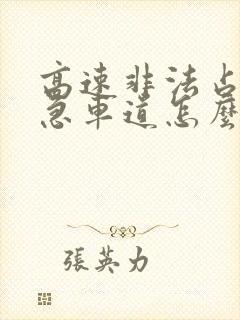 高速非法占
急車道怎麼
張英力